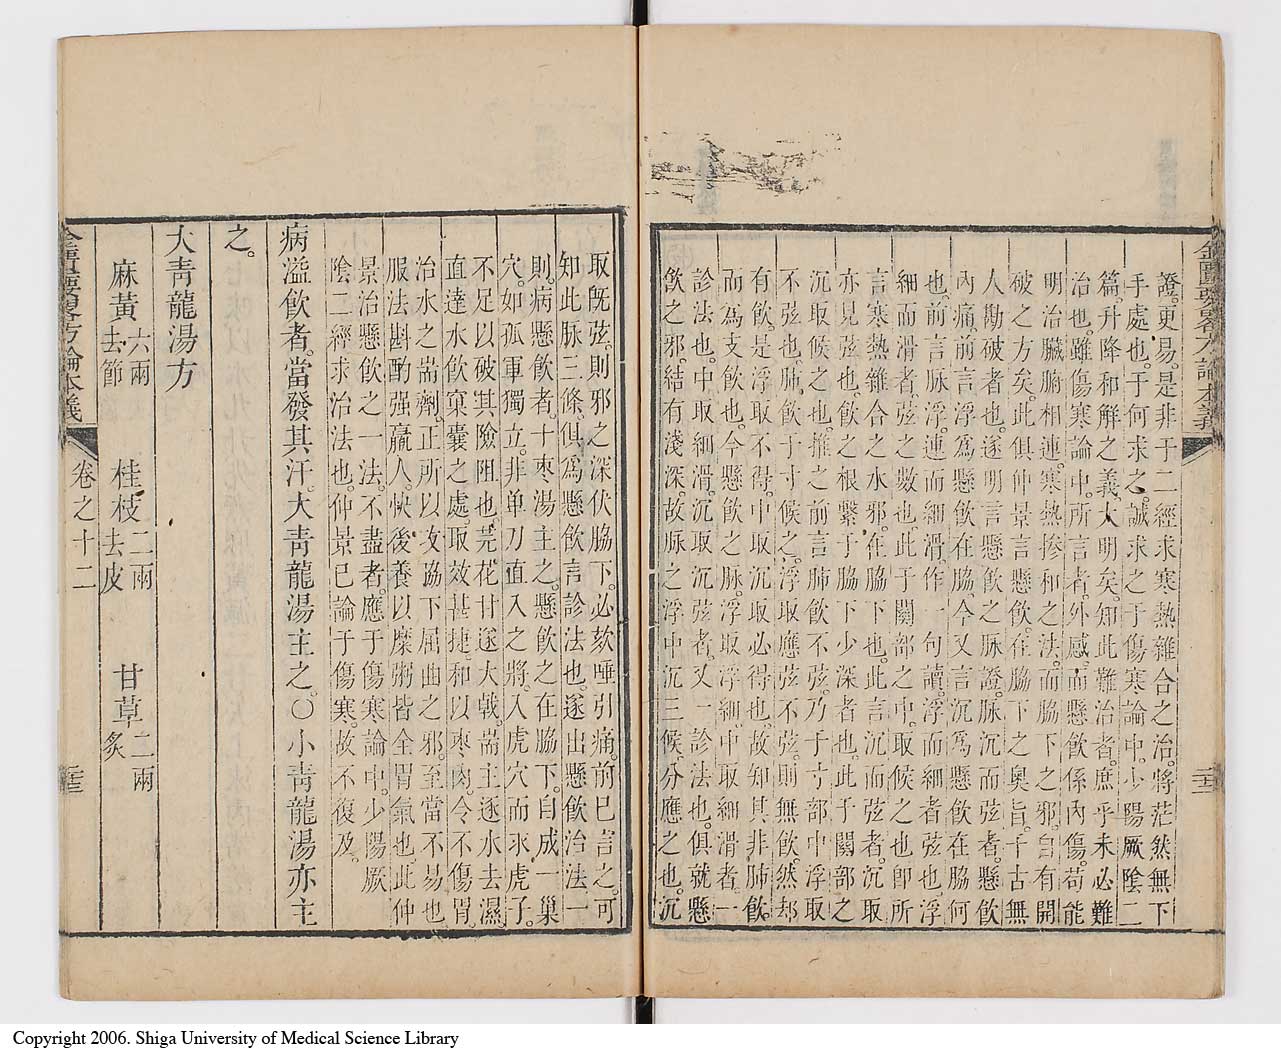 金匱要畧方論本義
二十三
證更易是非于二經求寒熱雜合之治將茫然無下
手處也于何求之誠求之于傷寒論中少陽厥陰二
篇升降和解之義大明矣知此難治者庶乎未必難
治也雖傷寒論中所言者外感而懸飲係內傷苟能
明治臟腑相連寒熱摻和之法而脇下之邪自有開
破之方矣此俱仲景言懸飲在脇下之奧旨千古無
人勘破者也遂明言懸飲之脉證脉沉而弦者懸飲
內痛前言浮爲懸飲在脇今又言沉爲懸飲在脇何
也前言脉浮連而細滑作一句讀浮而細者弦也浮
細而滑者弦之數也此于關部之中取候之也即所
言寒熱雜合之水邪在脇下也此言沉而弦者沉取
亦見弦也飲之根繫于脇下少深者也此于關部之
沉取候之也推之前言肺飲不弦乃于寸部中浮取
不弦也肺飲于寸候之浮取應弦不弦則無飲然却
有飲是浮取不得中取沉取必得也故知其非肺飲
而為支飲也今懸飲之脉浮取浮細中取細滑者一
診法也中取細滑沉取沉弦者又一診法也俱就懸
飲之邪結有淺深故脉之浮中沉三候分應之也沉
取既弦則邪之深伏脇下必欬唾引痛前已言之可
知此脉三條俱爲懸飲言診法也遂出懸飲治法一
則病懸飲者十枣湯主之懸飲之在脇下自成一巢
穴如孤軍獨立非单刀直入之將入虎穴而求虎子
不足以破其險阻也芫花甘遂大戟耑主逐水去濕
直達水飲窠囊之處取效甚捷和以枣肉令不傷胃
治水之耑劑正所以攻脇下屈曲之邪至當不易也
服法斟酌强羸人快後養以糜粥皆全胃氣也此仲
景治懸飲之一法不盡者應于傷寒論中少陽厥
陰二經求治法也仲景已論于傷寒故不復及
病溢飲者當發其汗大青龍湯主之○小青龍湯亦主
之
大青龍湯方
麻黃六兩去節 桂枝二兩去皮 甘草二兩炙
金匱要畧方論本義
卷之十二
二十三
Copyright 2006. Shiga University of Medical Science Library